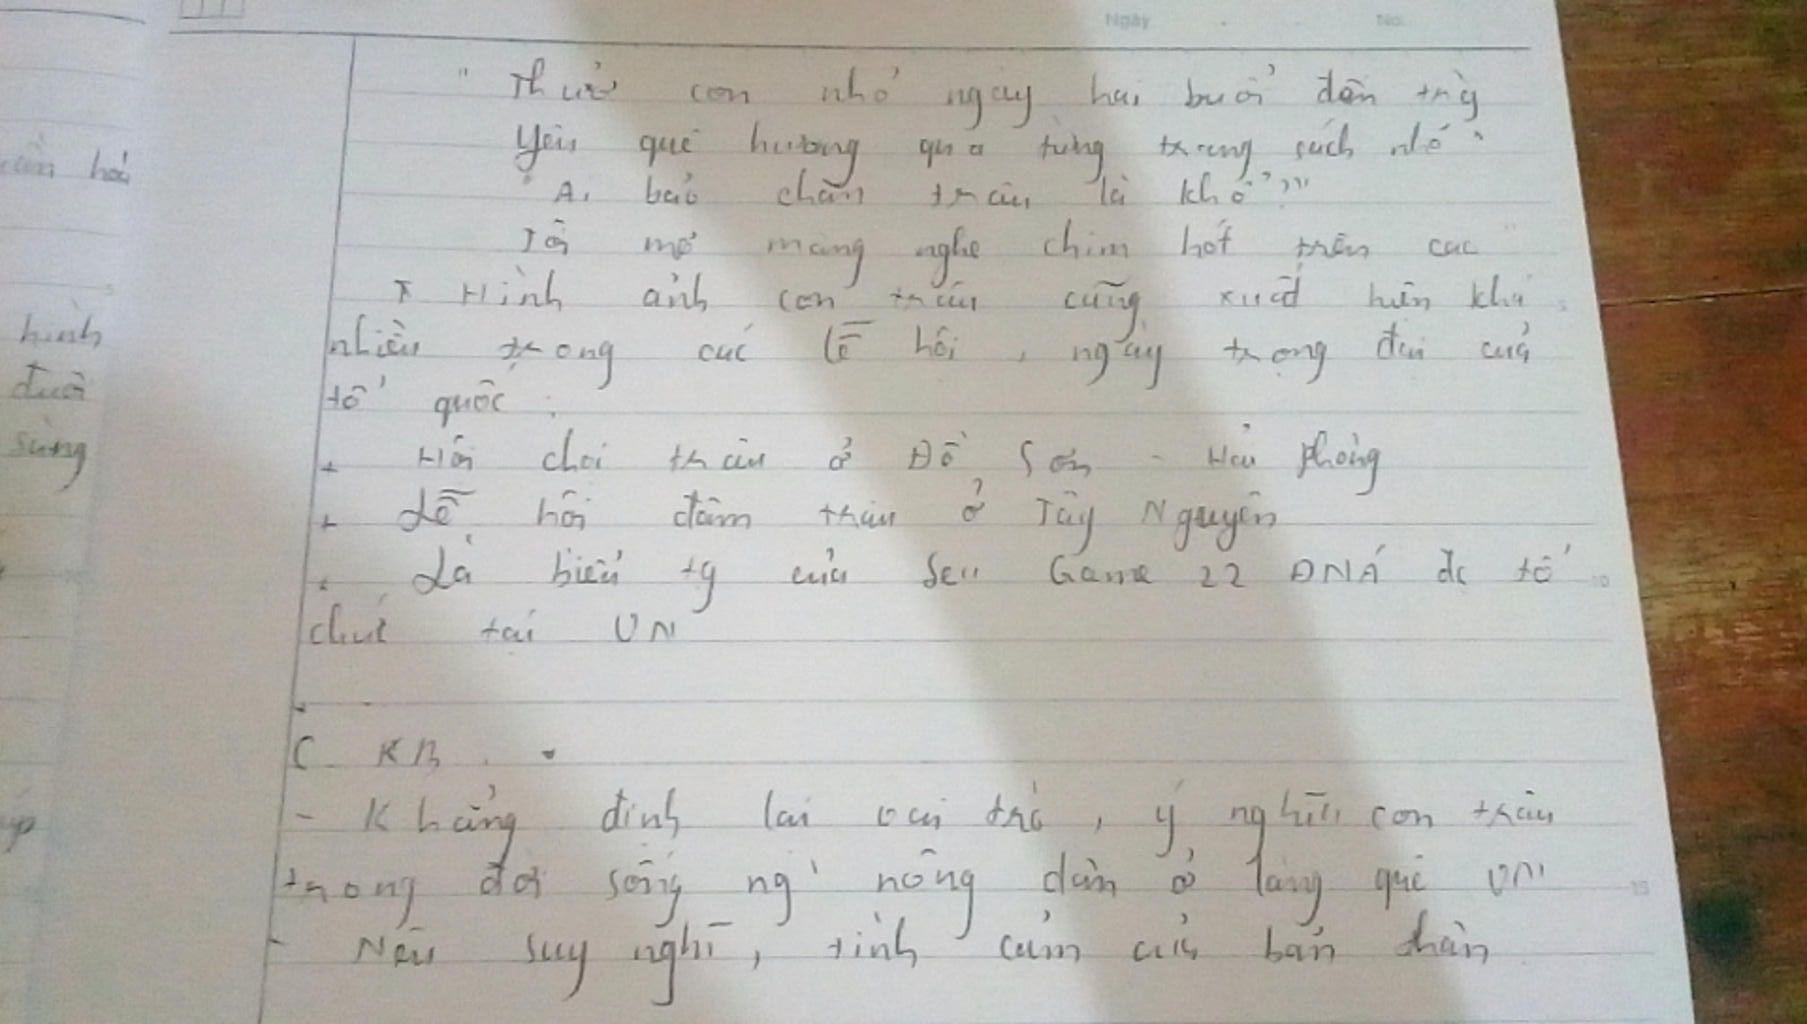 Ngày No.
" Thuở con nhỏ ngày hai buổi đến trg
Yêu quê hương qua từng trang sách nhỏ "
" Ai bảo chăn trâu là khổ ? "
Tôi mơ màng nghe chim hót trên cao "
* Hình ảnh con trâu cũng xuất hiện khá
nhiều trong các lễ hội , ngày trọng đại của
tổ quốc :
+ Hội chọi trâu ở Đồ Sơn - Hải Phòng
+ Lễ hội đâm trâu ở Tây Nguyên
+ Là biểu tg của Sea Game 22 ĐNÁ đc tổ
chức tại VN
C KB .
- Khẳng định lại vai trò , ý nghĩa con trâu
trong đời sống ng` nông dân ở làng quê VN
- Nêu suy nghĩ , tình cảm của bản thân
cần hoá
hình
đuôi
sừng